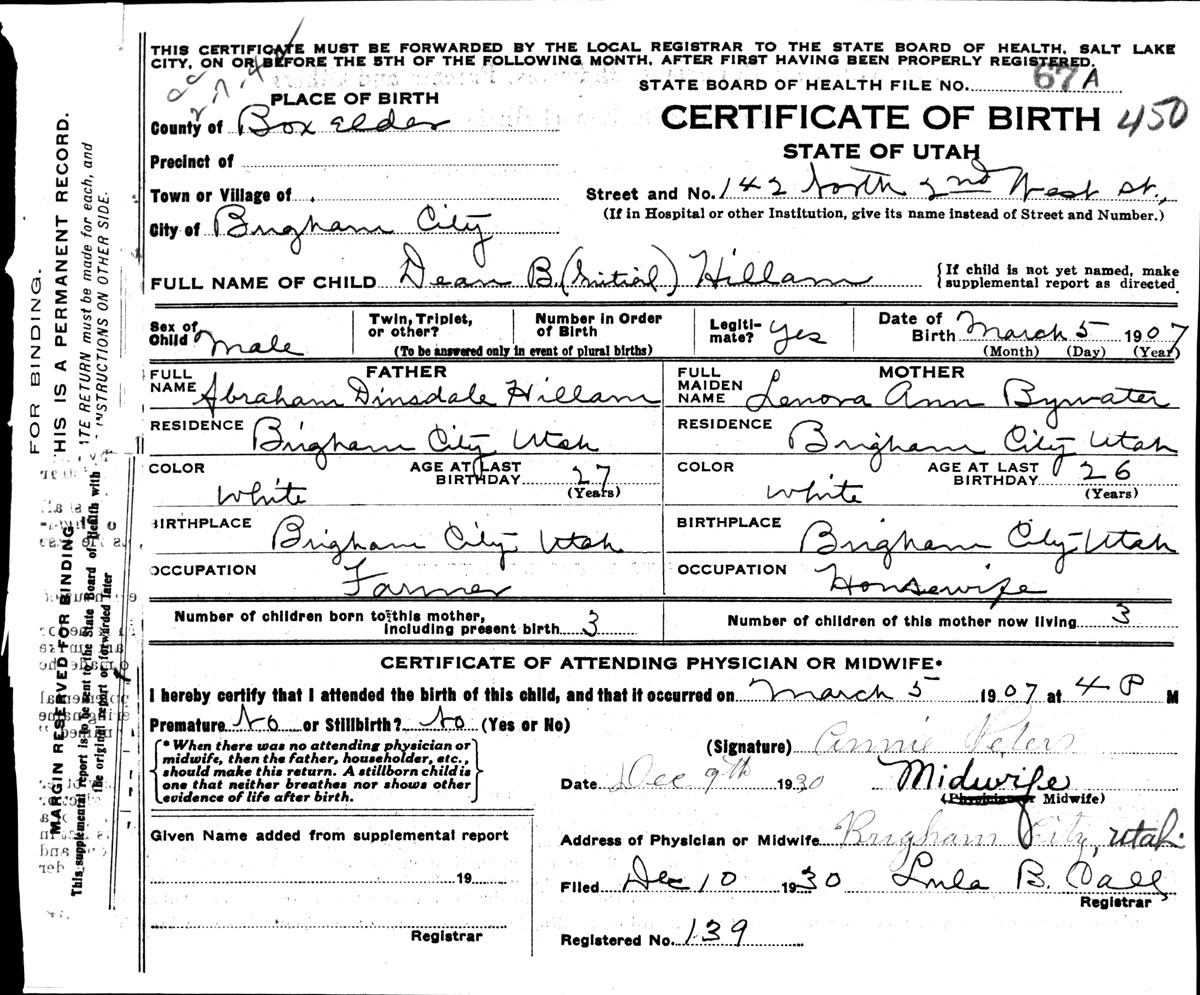 THIS CERTIFICATE MUST BE FORWARDED BY THE LOCAL REGISTRAR TO THE STATE BOARD OF HEALTH, SALT LAKE
CITY, ON OR BEFORE THE 5TH OF THE FOLLOWING MONTH, AFTER FIRST HAVING BEEN PROPERLY REGISTERED.
STATE BOARD OF HEALTH FILE NO. 67A
PLACE OF BIRTH
CERTIFICATE OF BIRTH 450
STATE OF UTAH
County of Box Elder
Precinct of
Town or Village of
Street and No. 142 North 2nd West St.,
(If in Hospital or other Institution, give its name instead of Street and Number.)
City of Brigham City
FULL NAME OF CHILD Dean B. (Initial) Hillam
{If child is not yet named, make
supplemental report as directed
Sex of Child Male
Twin, Triplet, or other?
Number in Order of Birth
(To be answered only in event of plural births)
Legitimate? Yes
Date of Birth March 5 1907
(Month) (Day) (Year)
FATHER
FULL NAME Abraham Dinsdale Hillam
RESIDENCE Brigham City Utah
COLOR White
AGE AT LAST BIRTHDAY 27 (Years)
BIRTHPLACE Brigham City Utah
OCCUPATION Farmer
MOTHER
FULL MAIDEN NAME Lenora Ann Bywater
RESIDENCE Brigham City Utah
COLOR White
AGE AT LAST BIRTHDAY 26 (Years)
BIRTHPLACE Brigham City Utah
OCCUPATION Housewife
Number of children born to this mother, including present birth 3
Number of children of this mother now living 3
CERTIFICATE OF ATTENDING PHYSICIAN OR MIDWIFE*
I hereby certify that I attended the birth of this child, and that it occurred on March 5 1907 at 4 P M
Premature No or Stillbirth? No (Yes or No)
{* When there was no attending physician or
midwife, then the father, householder, etc.,
should make this return. A stillborn child is
one that neither breathes nor shows other
evidence of life after birth.}
(Signature) Annie Peters
Date Dec 9th 1930 Midwife
(Physician or Midwife)
Address of Physician or Midwife Brigham City, Utah.
Given Name added from supplemental report
19
Registrar
Filed Dec 10 1930 Lula B. Dall
Registrar
Registered No. 139
FOR BINDING.
HIS IS A PERMANENT RECORD.
TE RETURN must be made for each, and
INSTRUCTIONS ON OTHER SIDE.
MARGIN RESERVED FOR BINDING
This supplemental report is to be sent to the State Board of Health with
the original report or forwarded later